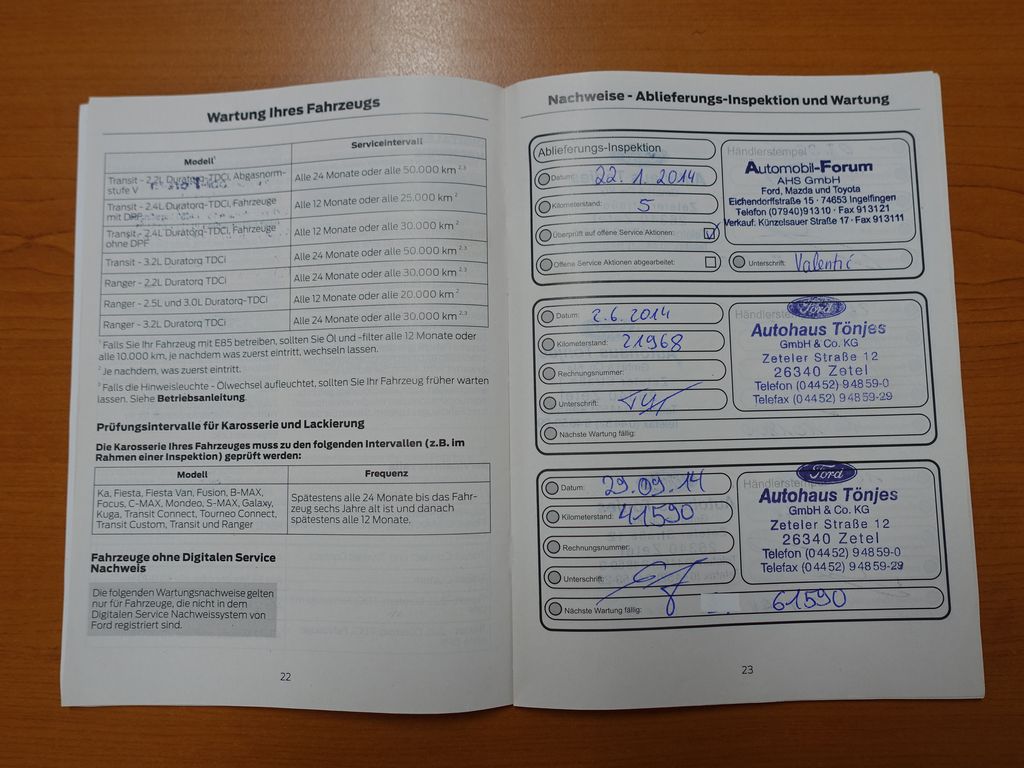 Wartung Ihres Fahrzeugs
Modell¹
Serviceintervall
Transit - 2.2L Duratorq-TDCi, Abgasnorm-
stufe V
Alle 24 Monate oder alle 50.000 km ²,³
Transit - 2.4L Duratorq-TDCi, Fahrzeuge
mit DPF
Alle 12 Monate oder alle 25.000 km ²
Transit - 2.4L Duratorq-TDCi, Fahrzeuge
ohne DPF
Alle 12 Monate oder alle 30.000 km ²
Transit - 3.2L Duratorq TDCi
Alle 24 Monate oder alle 50.000 km ²,³
Ranger - 2.2L Duratorq TDCi
Alle 24 Monate oder alle 30.000 km ²,³
Ranger - 2.5L und 3.0L Duratorq-TDCi
Alle 12 Monate oder alle 20.000 km ²
Ranger - 3.2L Duratorq TDCi
Alle 24 Monate oder alle 30.000 km ²,³
¹ Falls Sie Ihr Fahrzeug mit E85 betreiben, sollten Sie Öl und -filter alle 12 Monate oder
alle 10.000 km, je nachdem was zuerst eintritt, wechseln lassen.
² Je nachdem, was zuerst eintritt.
³ Falls die Hinweisleuchte - Ölwechsel aufleuchtet, sollten Sie Ihr Fahrzeug früher warten
lassen. Siehe Betriebsanleitung.
Prüfungsintervalle für Karosserie und Lackierung
Die Karosserie Ihres Fahrzeuges muss zu den folgenden Intervallen (z.B. im
Rahmen einer Inspektion) geprüft werden:
Modell
Frequenz
Ka, Fiesta, Fiesta Van, Fusion, B-MAX,
Focus, C-MAX, Mondeo, S-MAX, Galaxy,
Kuga, Transit Connect, Tourneo Connect,
Transit Custom, Transit und Ranger
Spätestens alle 24 Monate bis das Fahr-
zeug sechs Jahre alt ist und danach
spätestens alle 12 Monate.
Fahrzeuge ohne Digitalen Service
Nachweis
Die folgenden Wartungsnachweise gelten
nur für Fahrzeuge, die nicht in dem
Digitalen Service Nachweissystem von
Ford registriert sind.
22
Nachweise - Ablieferungs-Inspektion und Wartung
Ablieferungs-Inspektion
Datum: 22.1.2014
Kilometerstand: 5
Überprüft auf offene Service Aktionen:
Offene Service Aktionen abgearbeitet:
Händlerstempel
Automobil-Forum
AHS GmbH
Ford, Mazda und Toyota
Eichendorffstraße 15 · 74653 Ingelfingen
Telefon (07940) 91310 · Fax 913121
Verkauf: Künzelsauer Straße 17 · Fax 913111
Unterschrift: Valentić
Datum: 2.6.2014
Kilometerstand: 21968
Rechnungsnummer:
Unterschrift:
Nächste Wartung fällig:
Händlerstempel
Ford
Autohaus Tönjes
GmbH & Co. KG
Zeteler Straße 12
26340 Zetel
Telefon (04452) 94859-0
Telefax (04452) 94859-29
Datum: 29.09.14
Kilometerstand: 41590
Rechnungsnummer:
Unterschrift:
Nächste Wartung fällig: 61590
Händlerstempel
Ford
Autohaus Tönjes
GmbH & Co. KG
Zeteler Straße 12
26340 Zetel
Telefon (04452) 94859-0
Telefax (04452) 94859-29
23